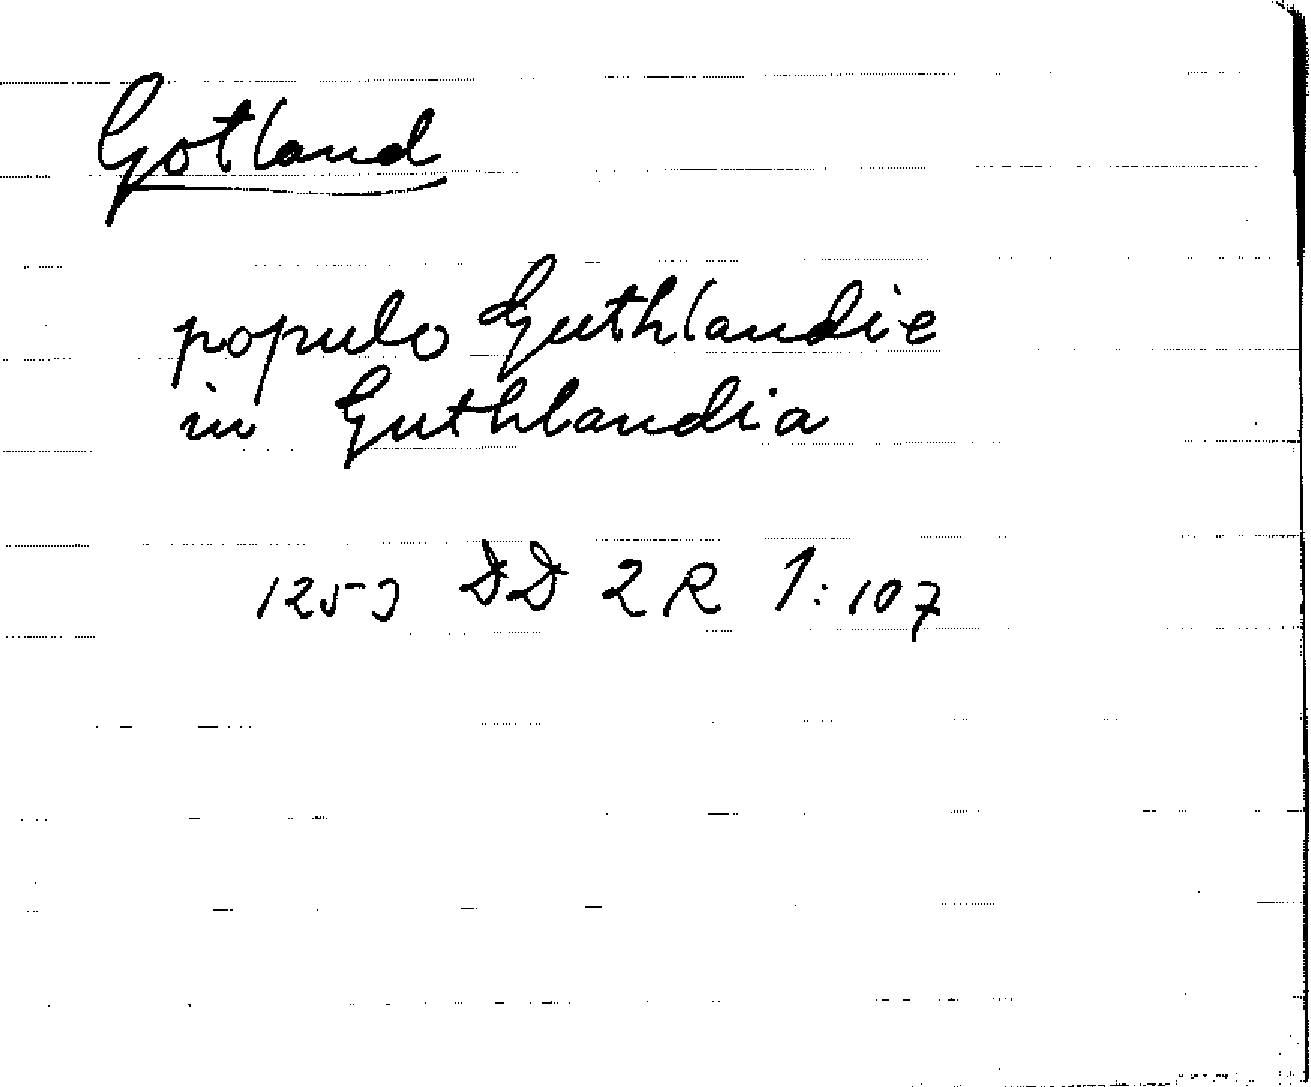 Gotland
populo Guthlandie
in Guthlandia
1253 DD 2 R 1:107